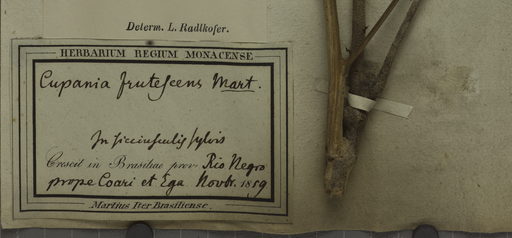 Determ. L. Radlkofer.
HERBARIUM REGIUM MONACENSE
Cupania frutescens Mart.
In sicciusculis sylvis
Crescit in Brasiliae prov. Rio Negro
prope Coari et Ega Novbr. 1819
Martius Iter Brasiliense.